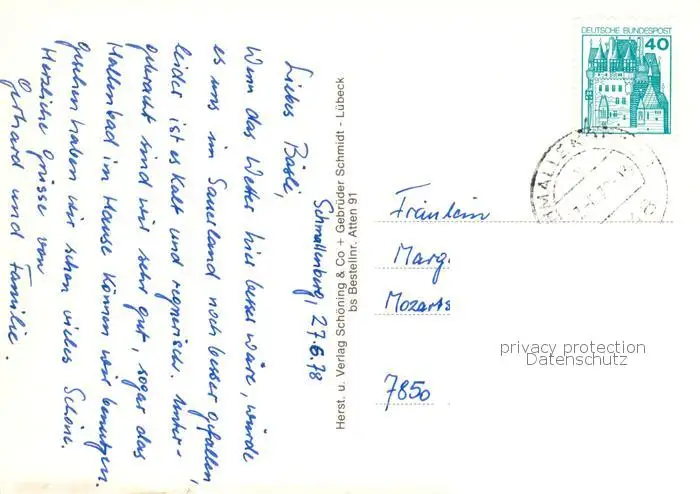 Schmallenberg, 27.6.78
Liebes Bäsli,
Wenn das Wetter hier besser wäre, würde
es uns im Sauerland noch besser gefallen,
leider ist es kalt und regnerisch. Unter-
gebracht sind wir sehr gut, sogar das
Hallenbad im Hause können wir benutzen.
Gesehen haben wir schon vieles Schöne.
Herzliche Grüsse von
Gerhard und Familie.
Herst. u. Verlag Schöning & Co + Gebrüder Schmidt - Lübeck
bs Bestellnr. Atten 91
DEUTSCHE BUNDESPOST
40
Fräulein
Marg.
Mozarts
7850
privacy protection
Datenschutz